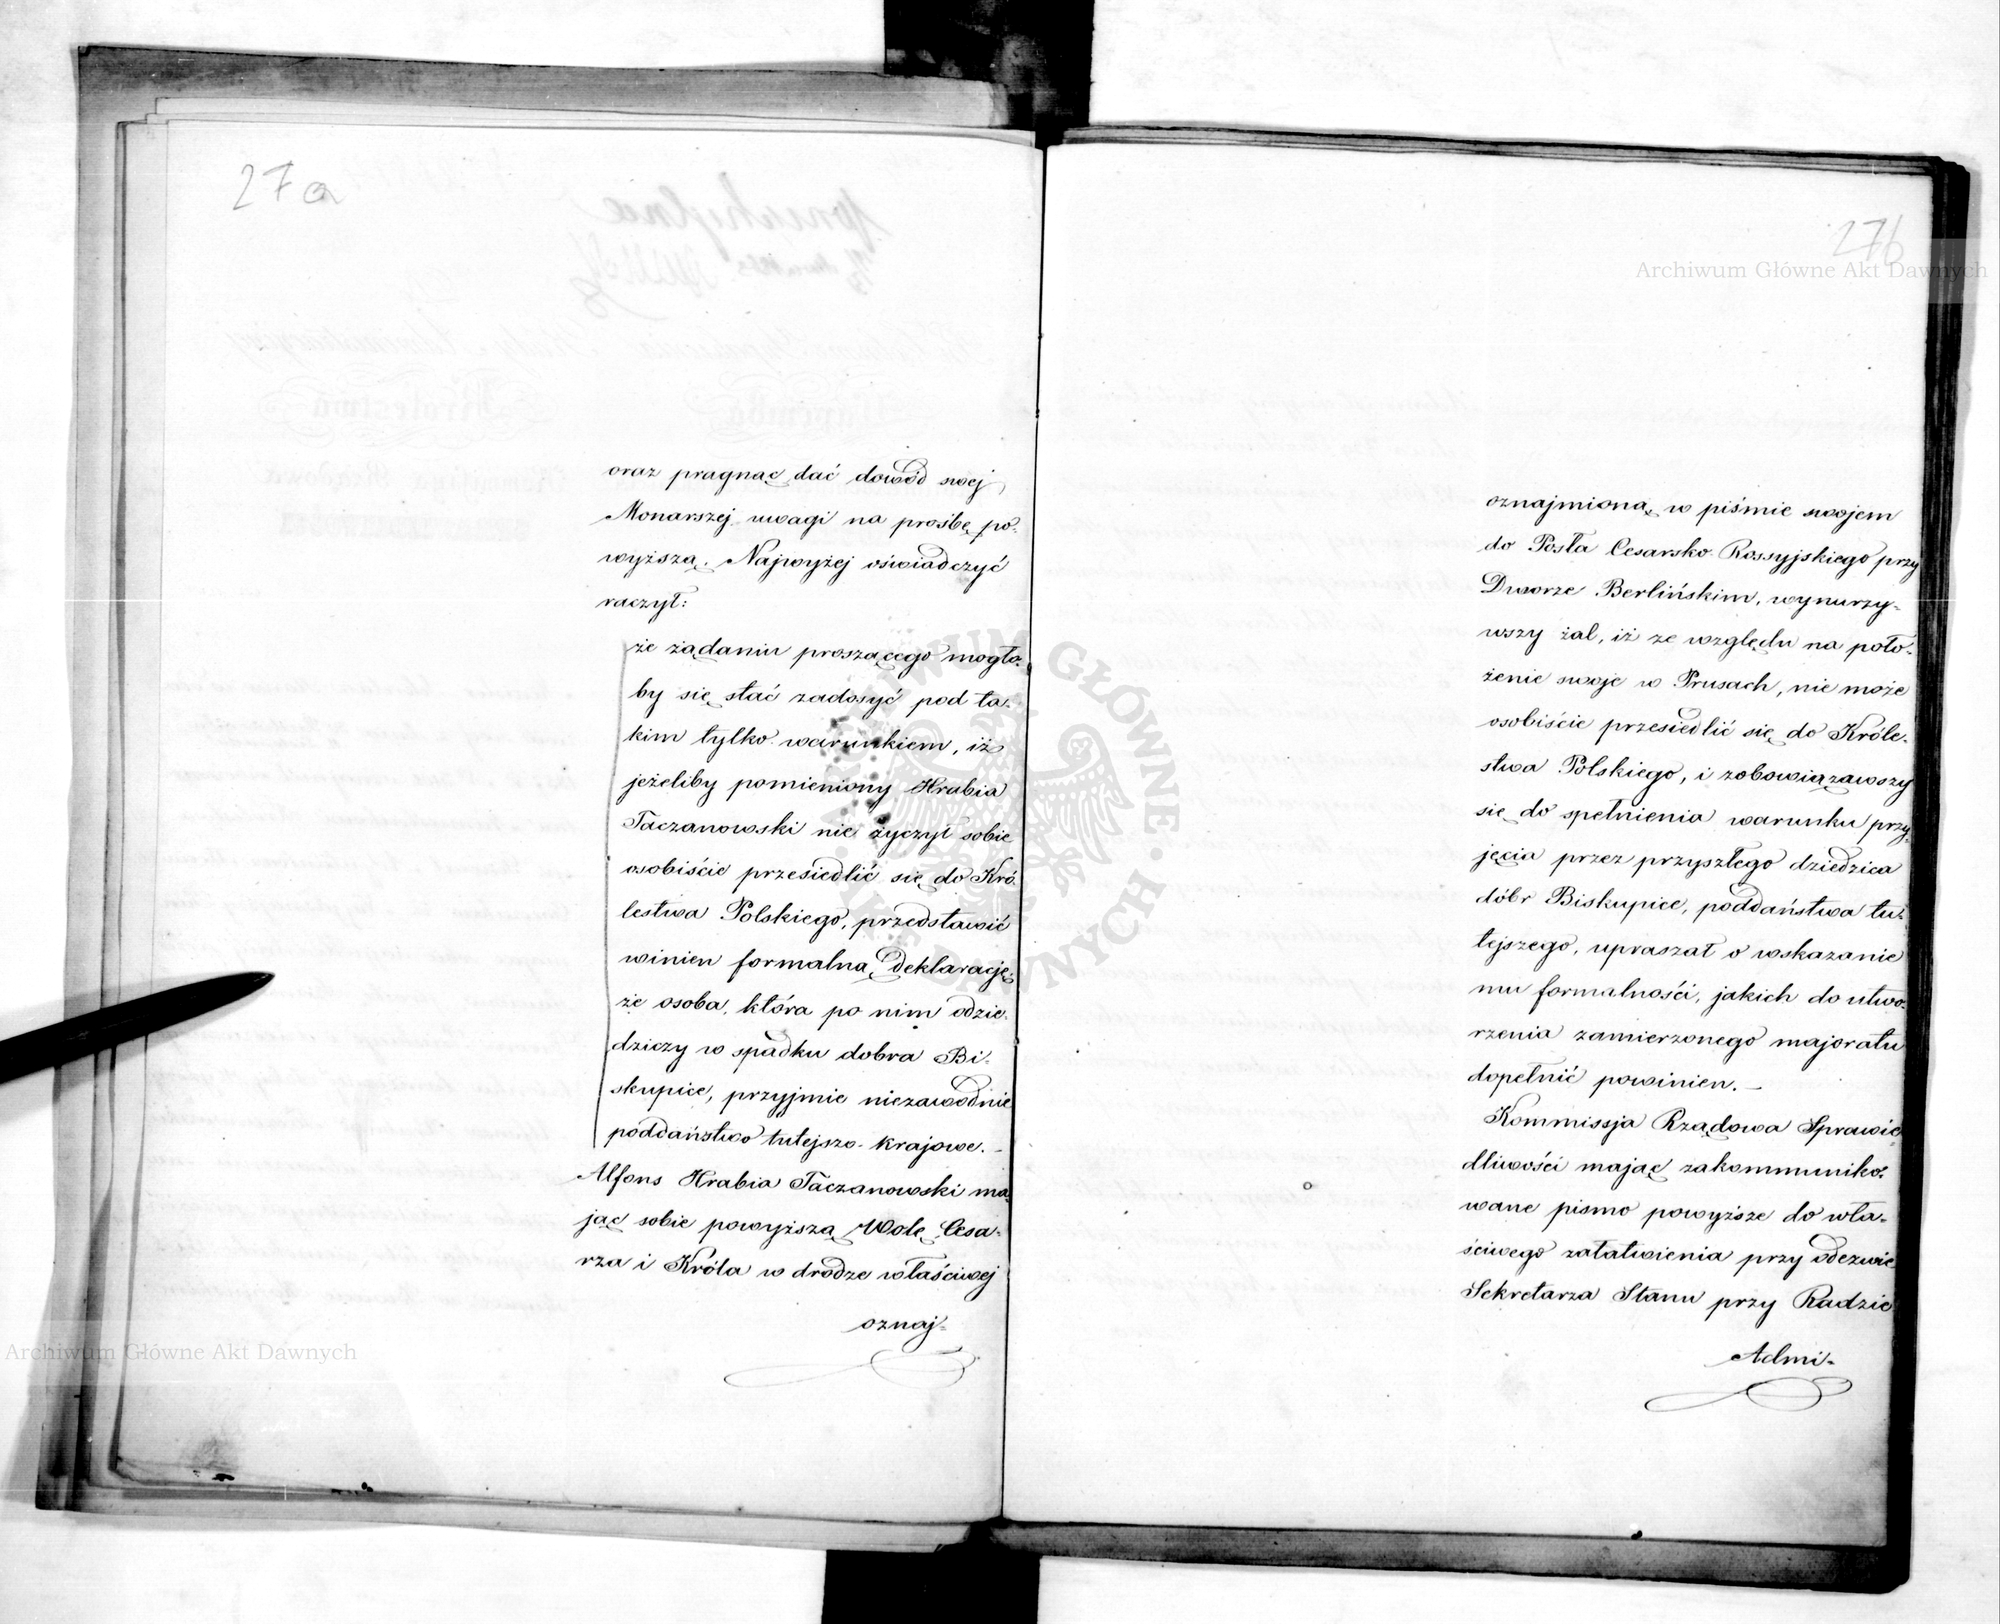 27a
oraz pragnąc dać dowód swej
Monarszej uwagi na prośbę po-
wyższą. Najwyżej oświadczyć
raczył:
że żądaniu proszącego mogło-
by się stać zadosyć pod ta-
kim tylko warunkiem, iż
jeżeliby pomieniony Hrabia
Taczanowski nie życzył sobie
osobiście przesiedlić się do Kró-
lestwa Polskiego, przedstawić
winien formalną deklarację,
że osoba, która po nim odzie-
dziczy w spadku dobra Bi-
skupice, przyjmie niezawodnie
poddaństwo tutejszo-krajowe. –
Alfons Hrabia Taczanowski ma-
jąc sobie powyższą Wolę Cesa-
rza i Króla w drodze właściwej
oznaj-
27b
oznajmioną, w piśmie swojem
do Posła Cesarsko-Rossyjskiego przy
Dworze Berlińskim, wynurzy-
wszy żal, iż ze względu na poło-
żenie swoje w Prusach, nie może
osobiście przesiedlić się do Króle-
stwa Polskiego, i zobowiązawszy
się do spełnienia warunku przy-
jęcia przez przyszłego dziedzica
dóbr Biskupice, poddaństwa tu-
tejszego, upraszał o wskazanie
mu formalności, jakich do utwo-
rzenia zamierzonego majoratu
dopełnić powinien. –
Kommissja Rządowa Sprawie-
dliwości mając zakommuniko-
wane pismo powyższe do wła-
ściwego załatwienia przy odezwie
Sekretarza Stanu przy Radzie
Admi-
Archiwum Główne Akt Dawnych
Archiwum Główne Akt Dawnych
ARCHIWUM GŁÓWNE AKT DAWNYCH